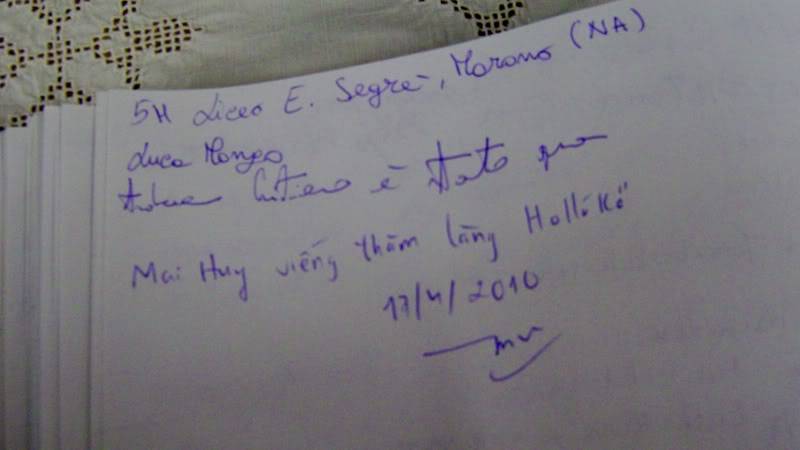 5H Liceo E. Segrè, Marano (NA)
Luca Mongo
è stato qua
Mai Huy viếng thăm làng Hollókő
17/4/2010